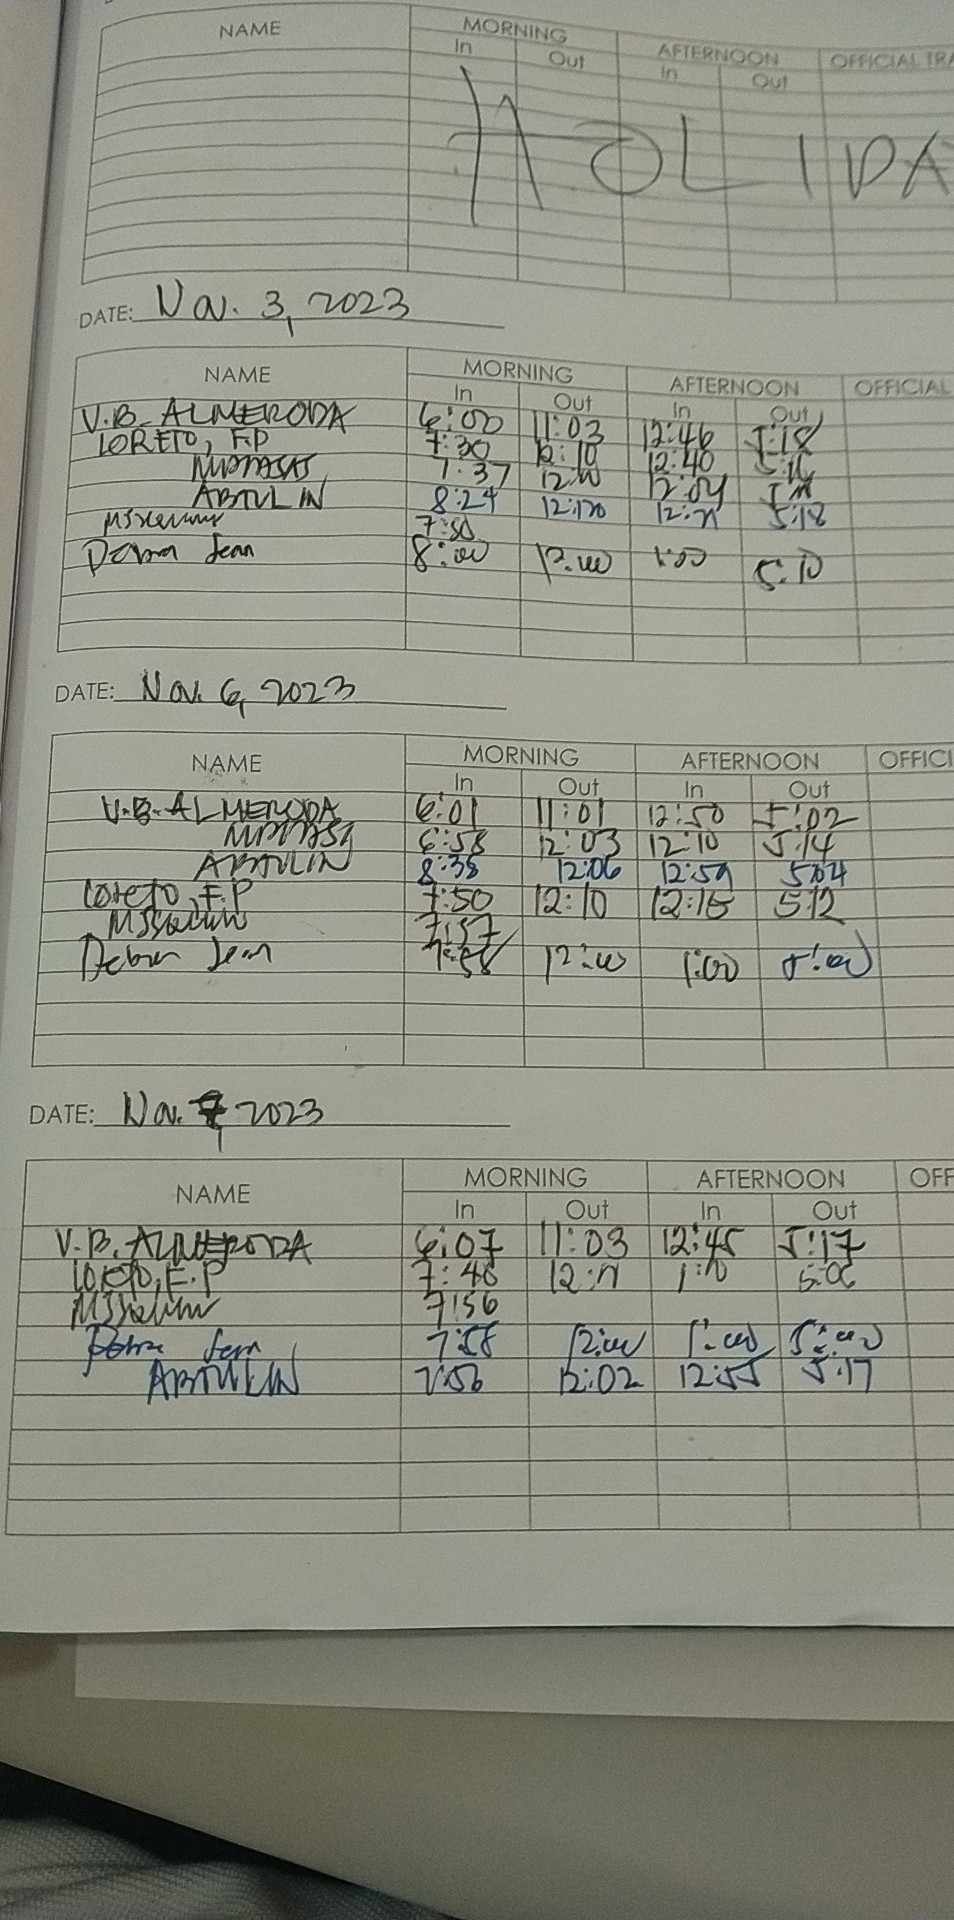 NAME MORNING AFTERNOON OFFICIAL TRA
In Out In Out
HOLIDA
DATE: Nov. 3, 2023
NAME MORNING AFTERNOON OFFICIAL
In Out In Out
V.B. ALMERODA 6:00 11:03 12:46 5:18
LORETO, F.P 7:30 12:10 12:40
7:37
ABTULIN 8:24 12:20 5:18
7:50
Debra Jean 8:00 12:00 1:00 5:10
DATE: Nov. 6, 2023
NAME MORNING AFTERNOON OFFICI
In Out In Out
V.B. ALMERODA 6:01 11:01 12:50 5:02
6:58 12:03 12:10 5:14
ABTULIN 8:38 12:06 12:59 5:04
Loreto, F.P 7:50 12:10 12:15 5:12
7:57
Debra Jean 7:58 12:00 1:00 5:00
DATE: Nov. 7, 2023
NAME MORNING AFTERNOON OFF
In Out In Out
V.B. ALMERODA 6:07 11:03 12:45 5:17
Loreto, F.P 7:46 1:10 5:06
7:56
Debra Jean 7:58 12:00 1:00 5:00
ABTULIN 7:56 12:02 12:55 5:17